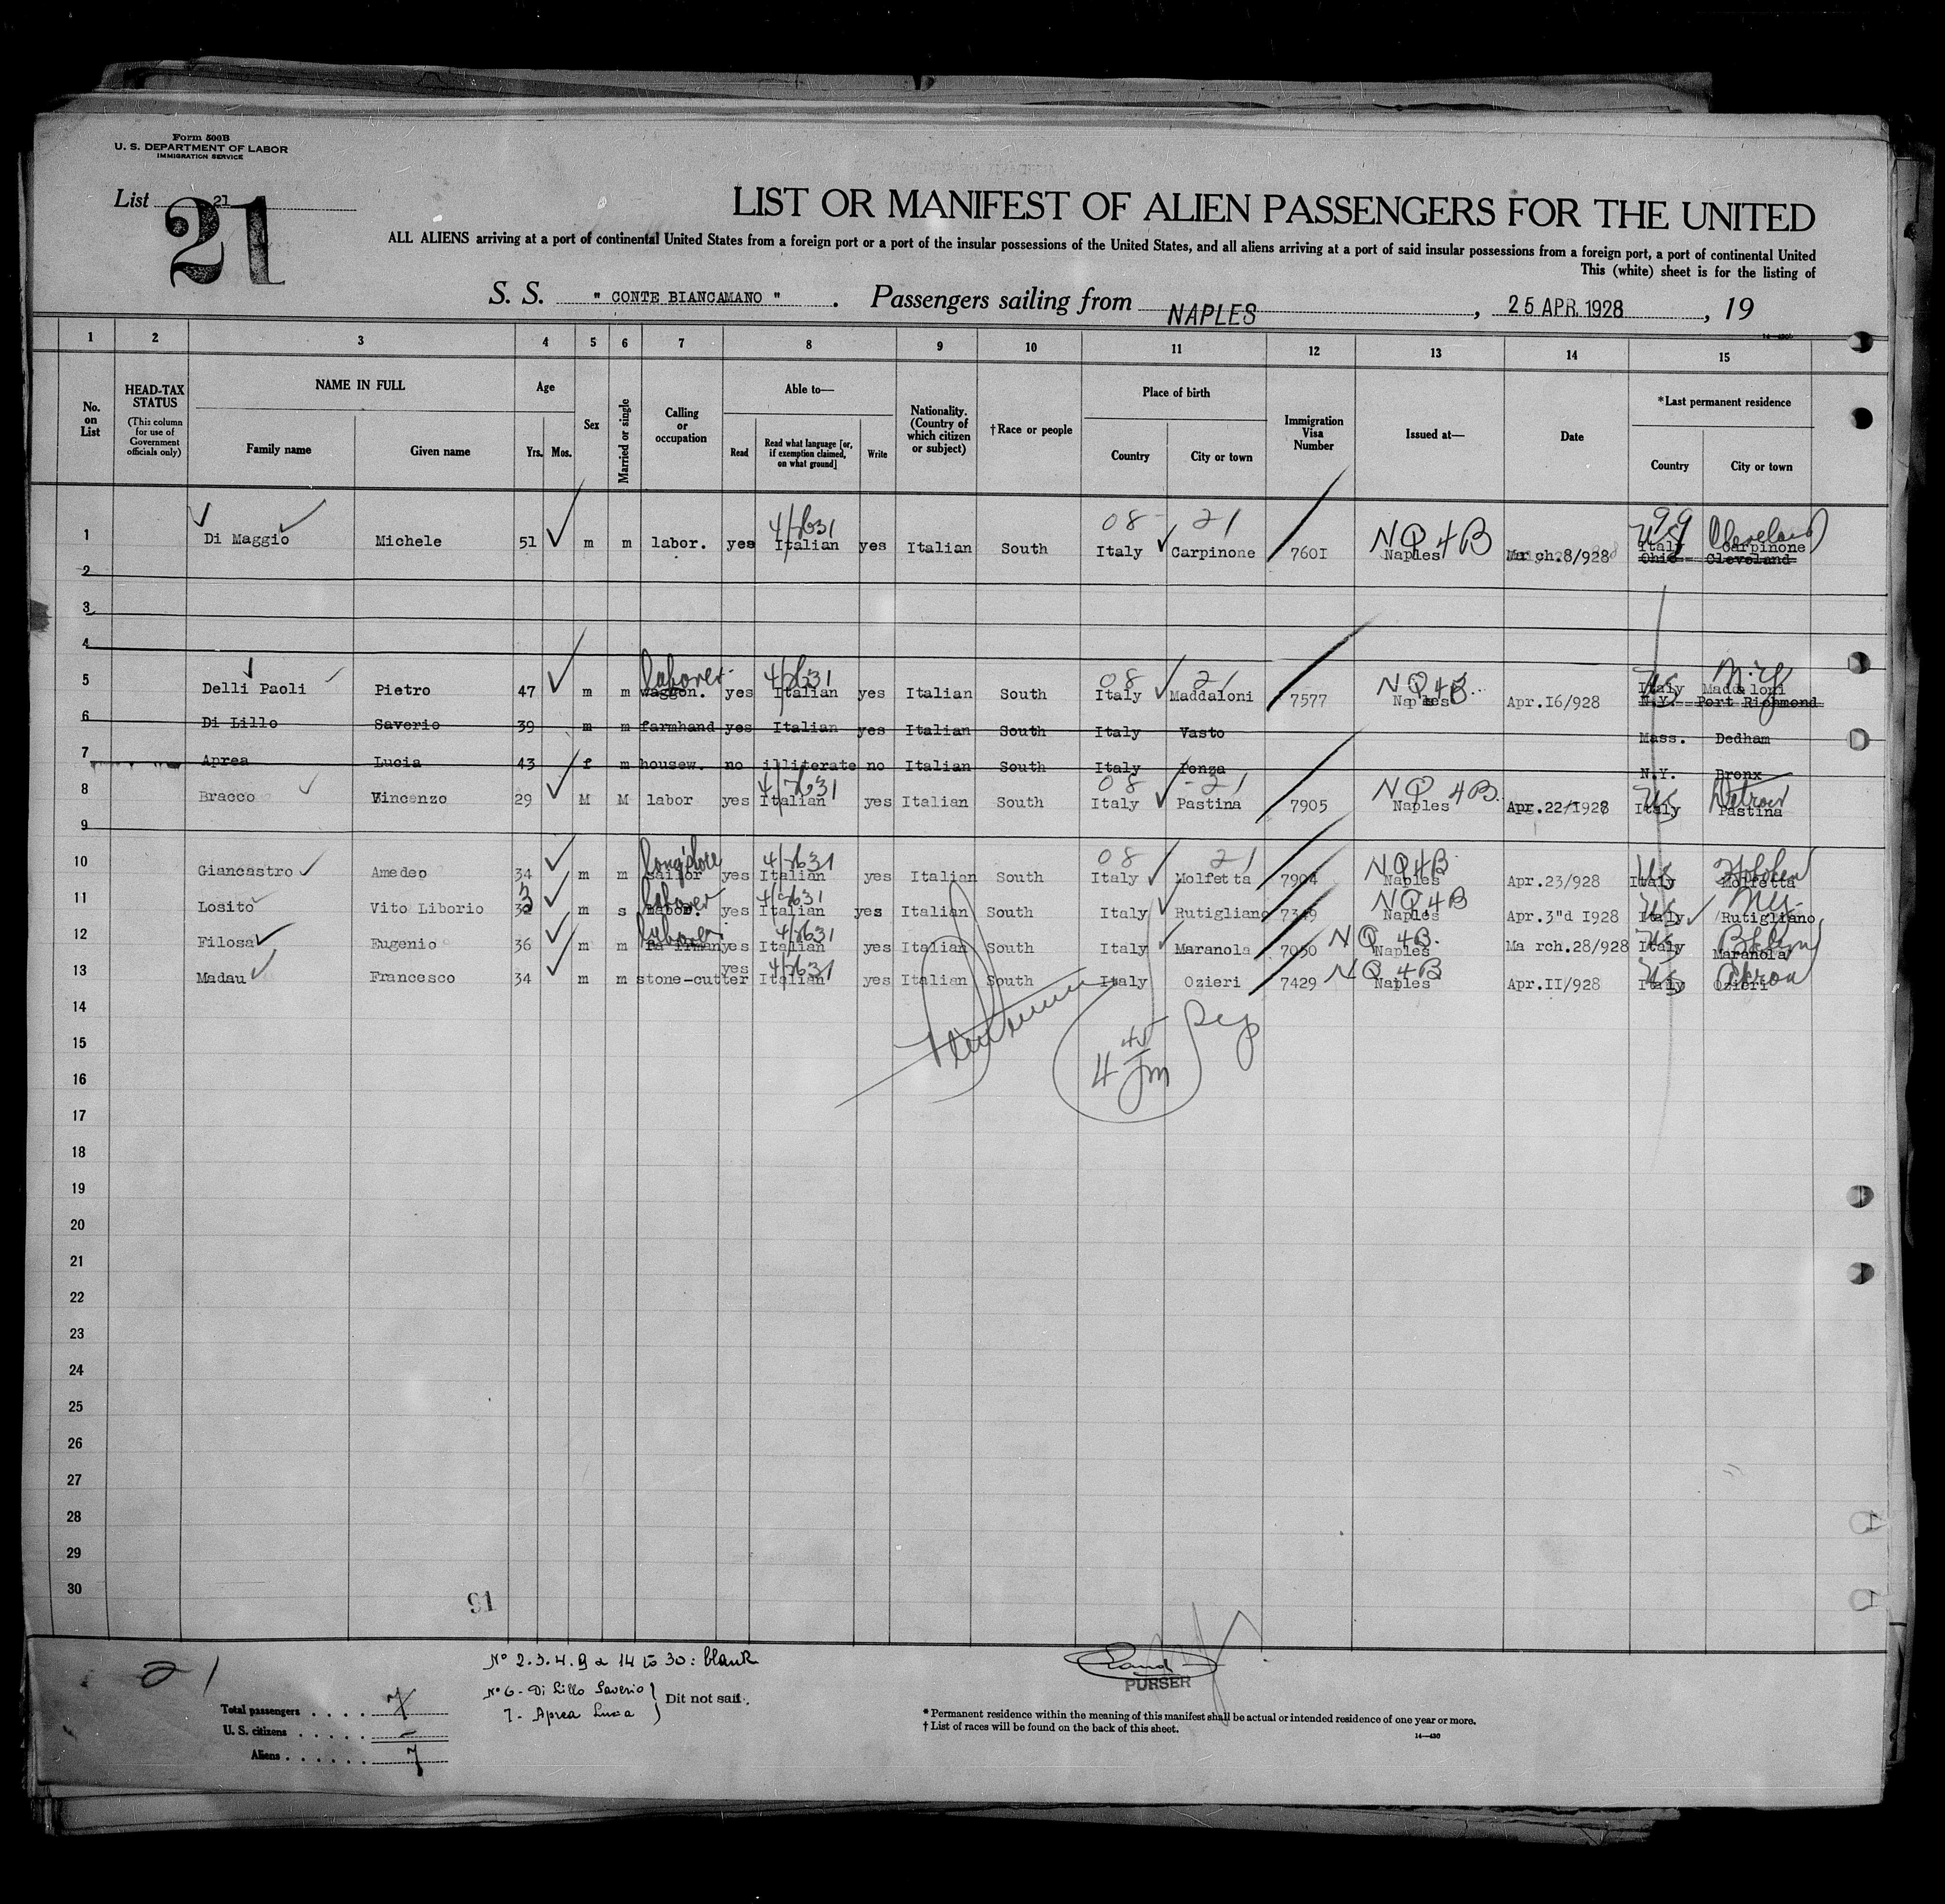 Form 500B
U. S. DEPARTMENT OF LABOR
IMMIGRATION SERVICE
List 21
21
LIST OR MANIFEST OF ALIEN PASSENGERS FOR THE UNITED
ALL ALIENS arriving at a port of continental United States from a foreign port or a port of the insular possessions of the United States, and all aliens arriving at a port of said insular possessions from a foreign port, a port of continental United
This (white) sheet is for the listing of
S. S. " CONTE BIANCAMANO " . Passengers sailing from NAPLES , 25 APR. 1928 , 19
1 2 3 4 5 6 7 8 9 10 11 12 13 14 15
No. on List
HEAD-TAX STATUS
(This column for use of Government officials only)
NAME IN FULL
Family name
Given name
Age
Yrs. Mos.
Sex
Married or single
Calling or occupation
Able to—
Read
Read what language [or, if exemption claimed, on what ground]
Write
Nationality. (Country of which citizen or subject)
†Race or people
Place of birth
Country
City or town
Immigration Visa Number
Issued at—
Date
*Last permanent residence
Country
City or town
08 21 99
NQ 4B US Cleveland
1 Di Maggio Michele 51 m m labor. yes Italian yes Italian South Italy Carpinone 7601 Naples March.8/928 Italy Carpinone
Ohio Cleveland
2
3
4
laborer 08 21 NQ4B US N.Y.
5 Delli Paoli Pietro 47 m m waggon. yes Italian yes Italian South Italy Maddaloni 7577 Naples Apr.I6/928 Italy Maddaloni
N.Y. Port Richmond
6 Di Lillo Saverio 39 m m farmhand yes Italian yes Italian South Italy Vasto Mass. Dedham
7 Aprea Lucia 43 f m housew. no illiterate no Italian South Italy Ponza N.Y. Bronx
08 21 NQ 4B US Detroit
8 Bracco Vincenzo 29 M M labor yes Italian yes Italian South Italy Pastina 7905 Naples Apr.22/I928 Italy Pastina
9
longshore 08 21 NQ4B US Hoboken
10 Giancastro Amedeo 34 m m sailor yes Italian yes Italian South Italy Molfetta 7904 Naples Apr.23/928 Italy Molfetta
laborer NQ4B US NY
11 Losito Vito Liborio m s labor. yes Italian yes Italian South Italy Rutigliano 7349 Naples Apr.3"d I928 Italy Rutigliano
laborer NQ 4B US Bklyn
12 Filosa Eugenio 36 m m yes Italian yes Italian South Italy Maranola 7050 Naples March.28/928 Italy Maranola
NQ 4B US Akron
13 Madau Francesco 34 m m stone-cutter yes Italian yes Italian South Italy Ozieri 7429 Naples Apr.II/928 Italy Ozieri
14
15
16
17
18
19
20
21
22
23
24
25
26
27
28
29
30
91
21
Nº 2.3.4.9 & 14 to 30: blank
Nº 6 - Di Lillo Saverio
7 - Aprea Lucia
Dit not sail.
Total passengers . . . . 7
U. S. citizens . . . . . –
Aliens . . . . . . 7
PURSER
* Permanent residence within the meaning of this manifest shall be actual or intended residence of one year or more.
† List of races will be found on the back of this sheet.
14—430